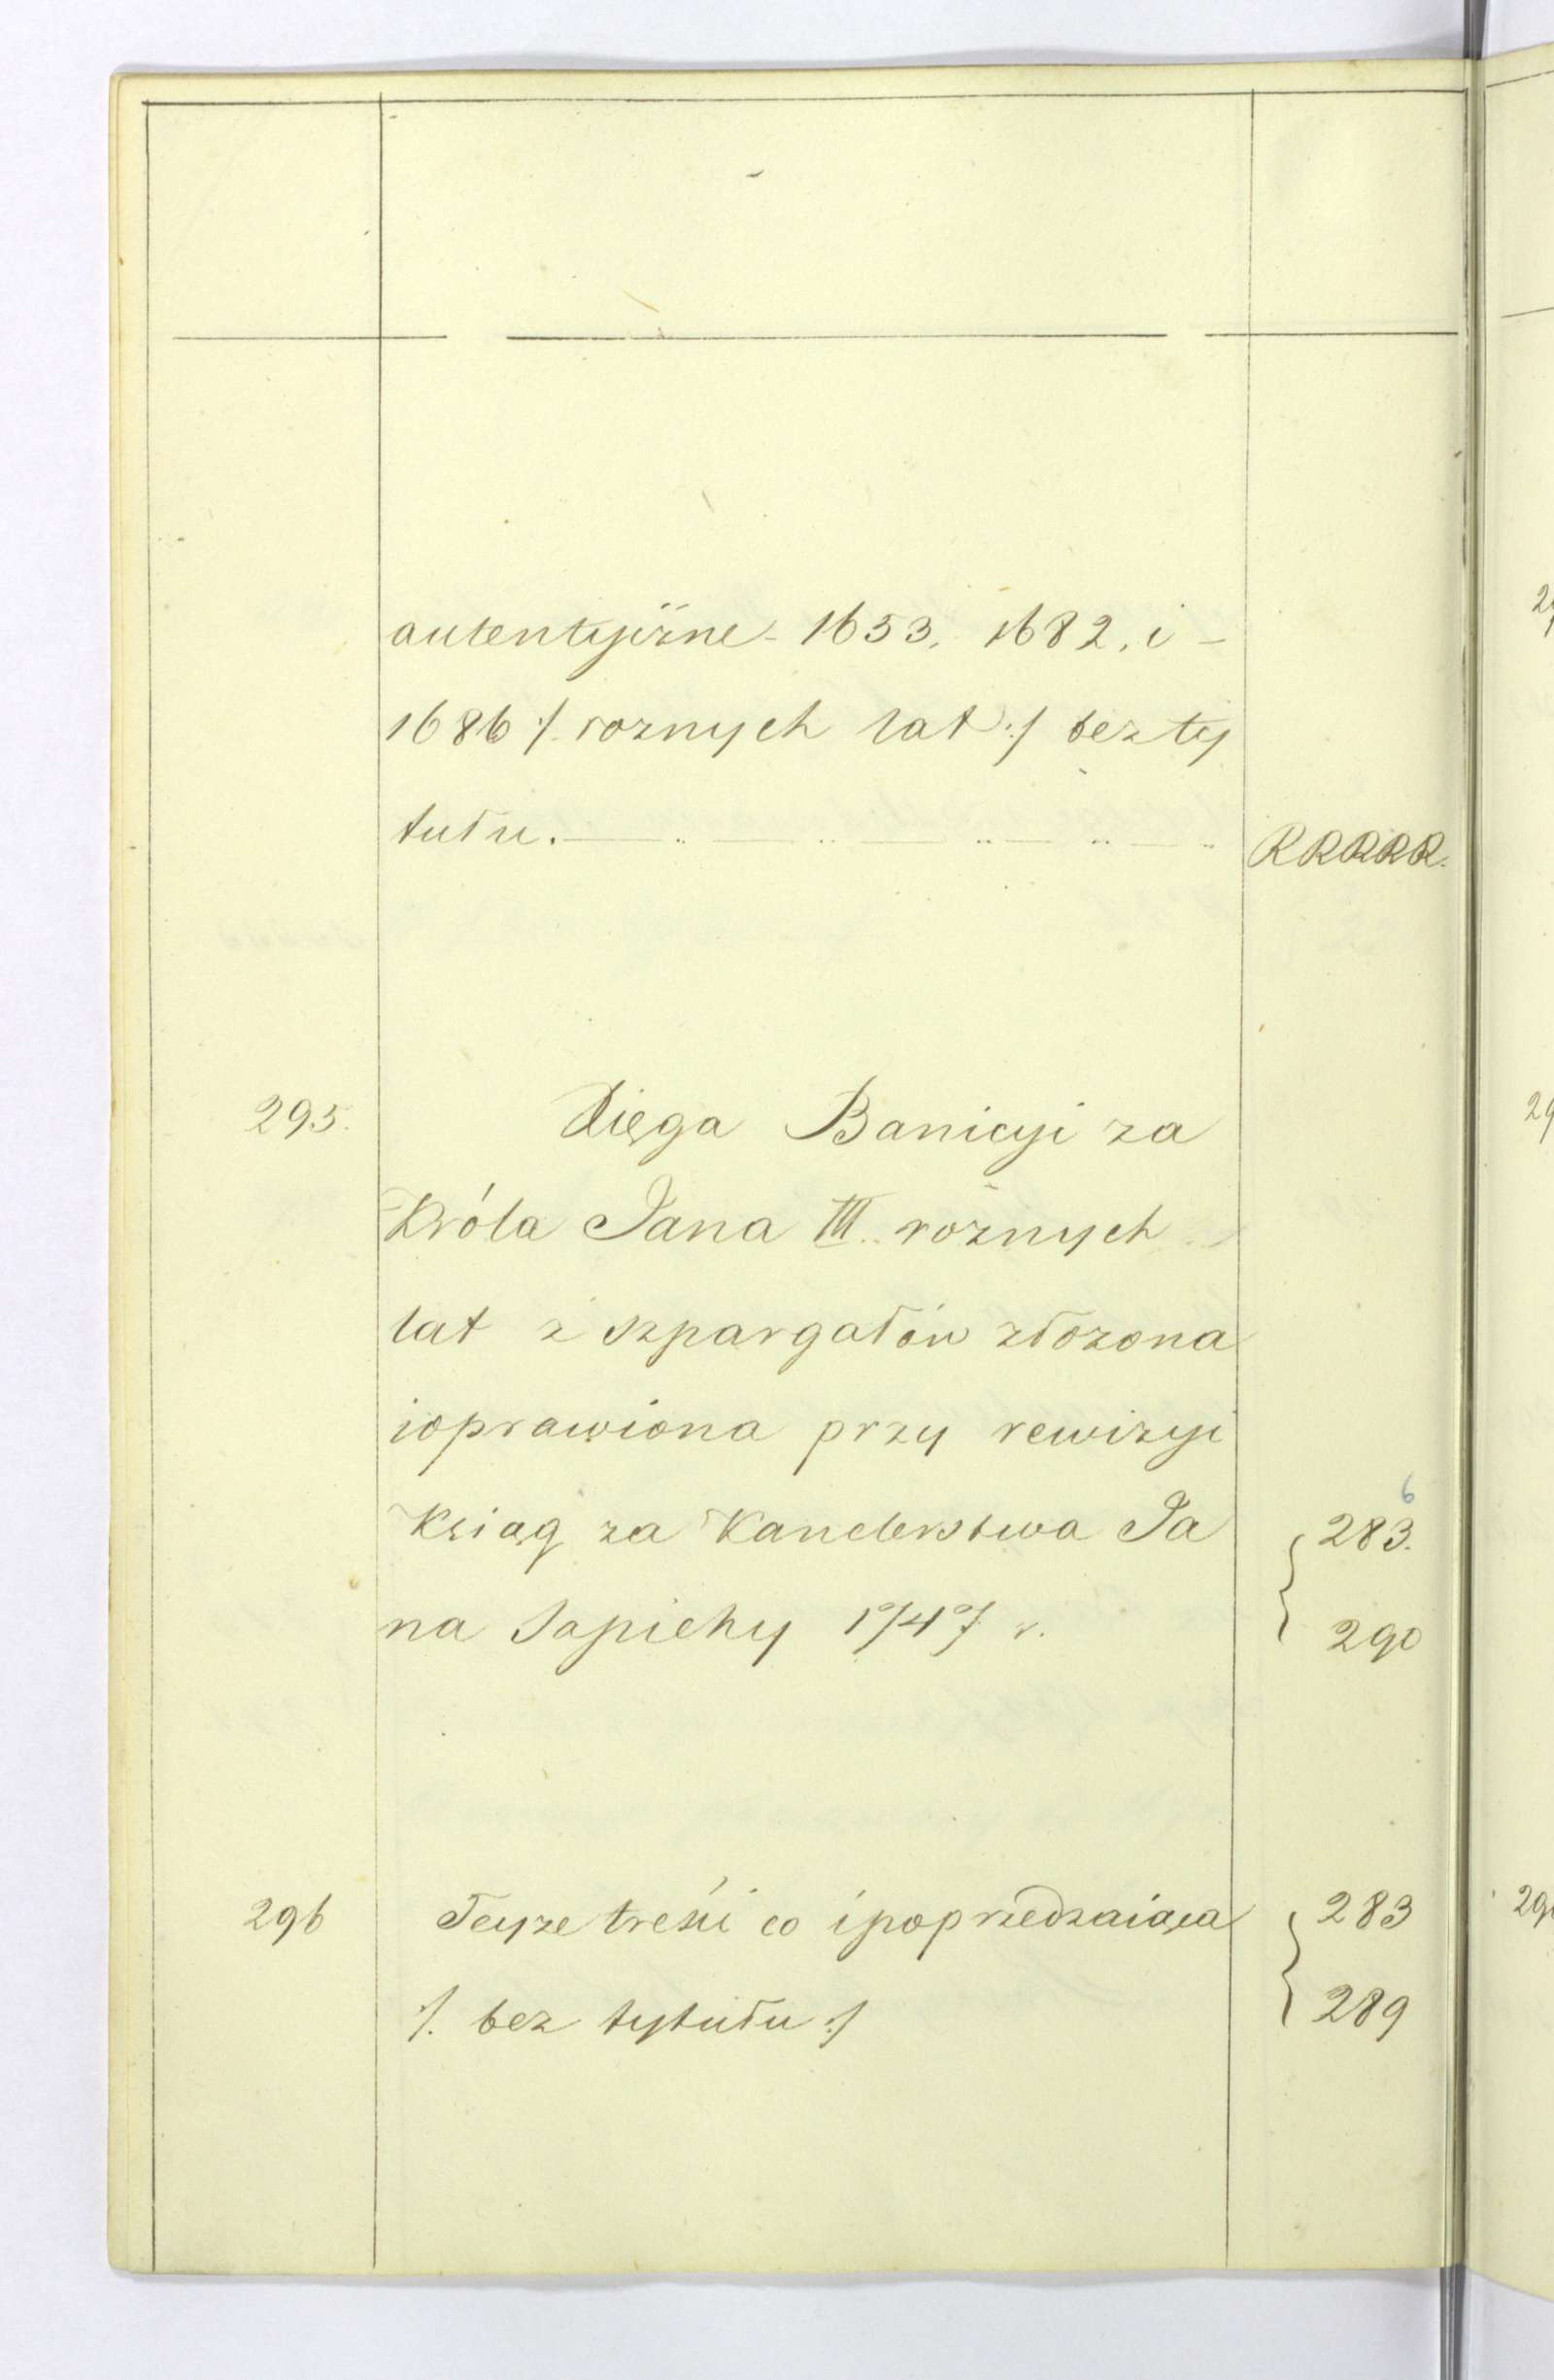 autentyczne - 1653. 1682. i -
1686 /. roznych lat ./ bez ty
tułu. RRRRR.
295. Xięga Banicyi za
Króla Jana III. roznych
lat z szpargałów złozona
ioprawiona przy rewizyi
Ksiąg za Kanclerstwa Ja 283. 6
na Sapiehy 1747 r. 290
296 Teyze treści co ipoprzedzaiąca 283
/. bez tytułu ./ 289